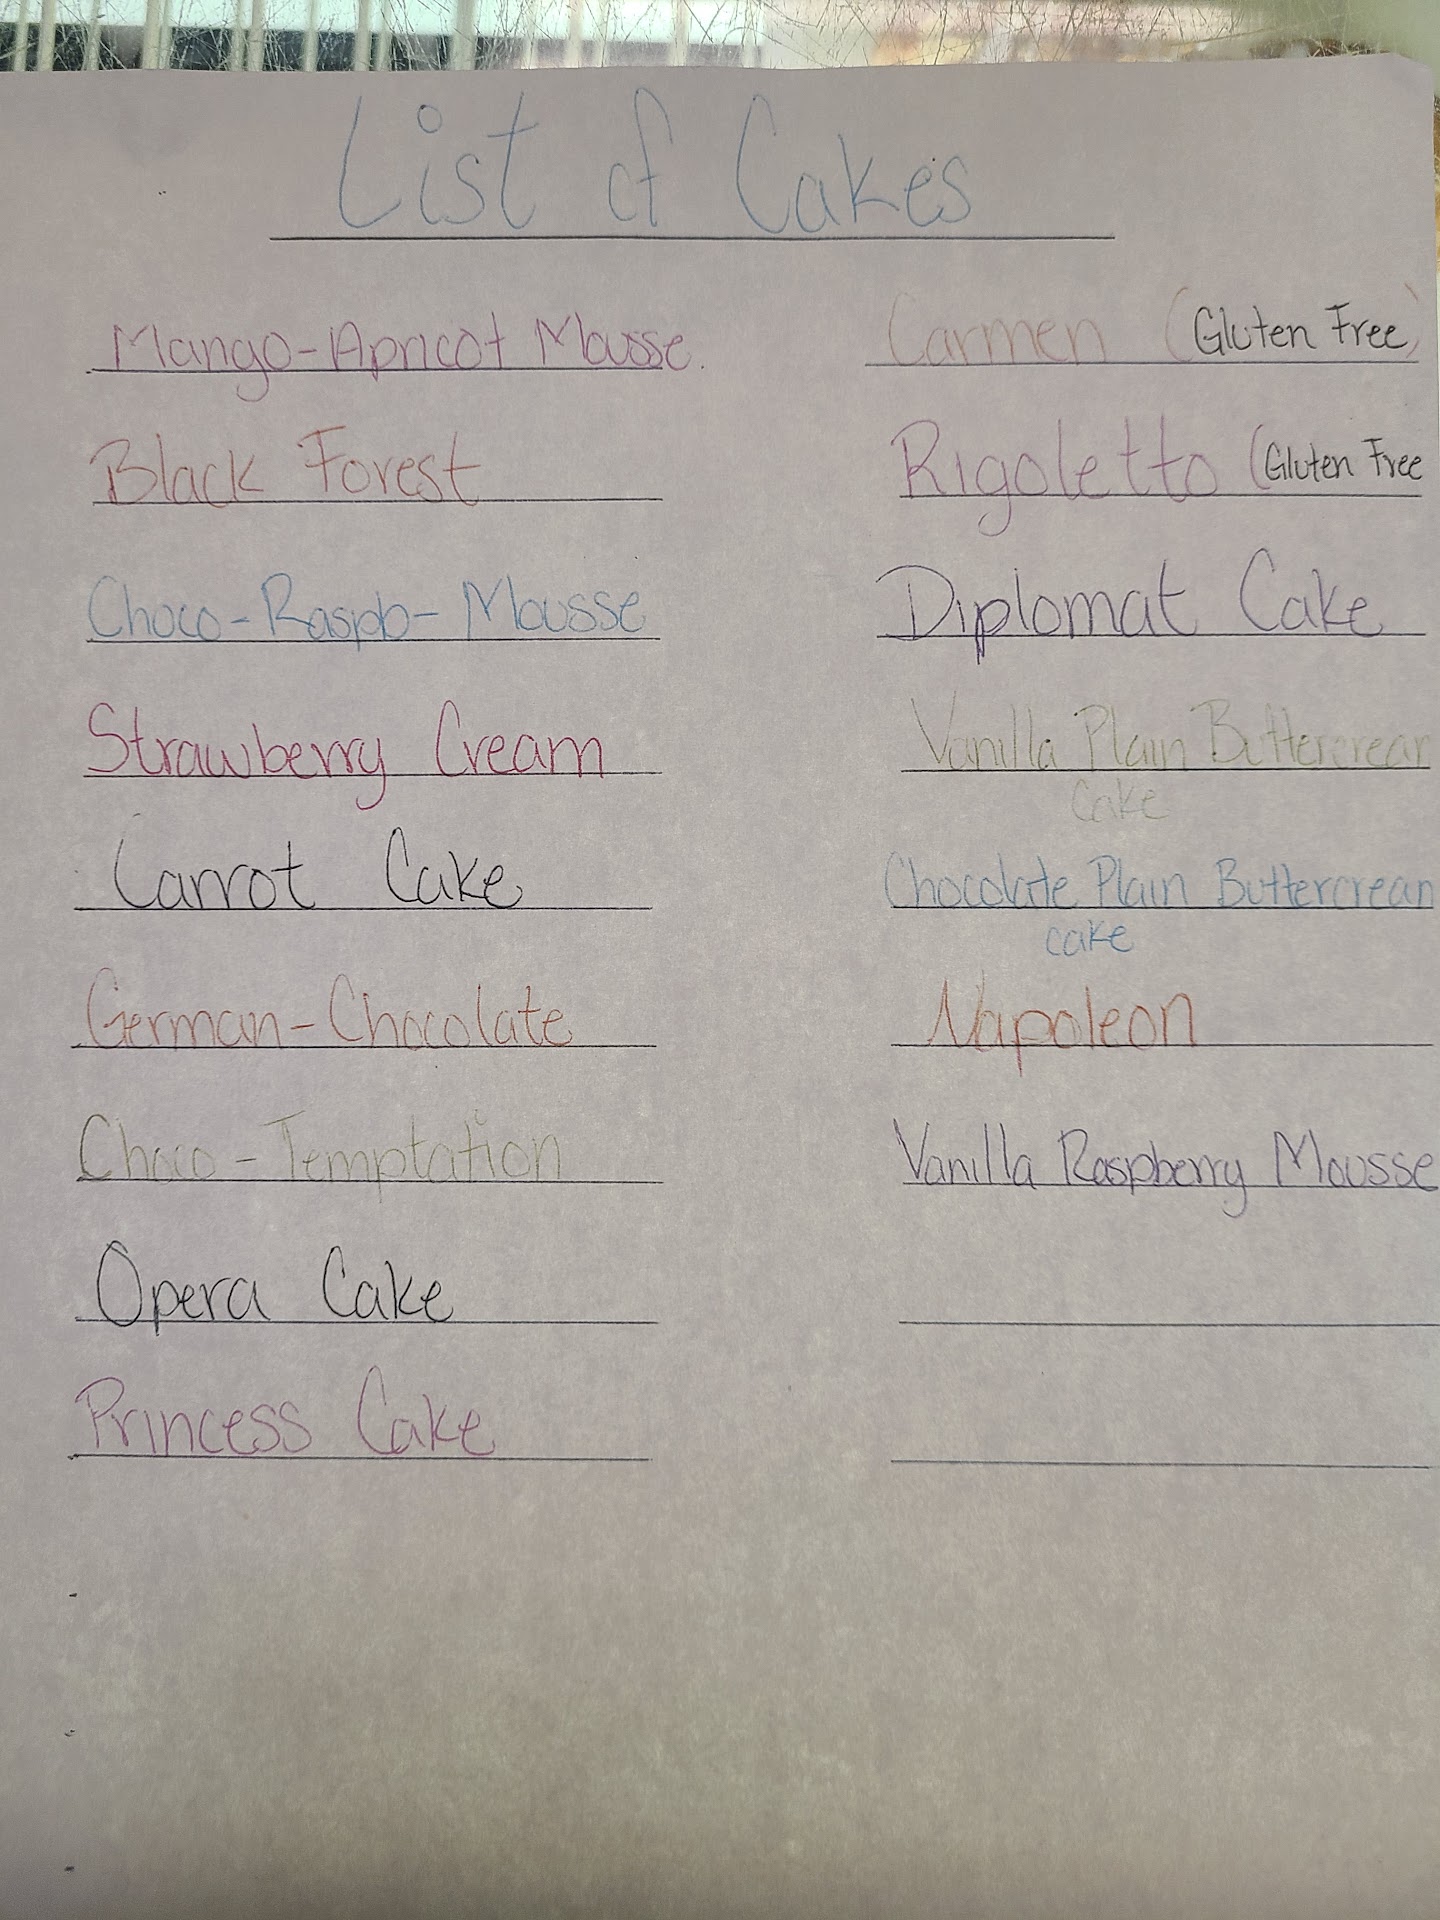 List of Cakes
Mango-Apricot Mousse.
Black Forest
Choco-Raspb-Mousse
Strawberry Cream
Carrot Cake
German-Chocolate
Choco-Temptation
Opera Cake
Princess Cake
Carmen (Gluten Free)
Rigoletto (Gluten Free
Diplomat Cake
Vanilla Plain Buttercream
Cake
Chocolate Plain Buttercream
cake
Napoleon
Vanilla Raspberry Mousse